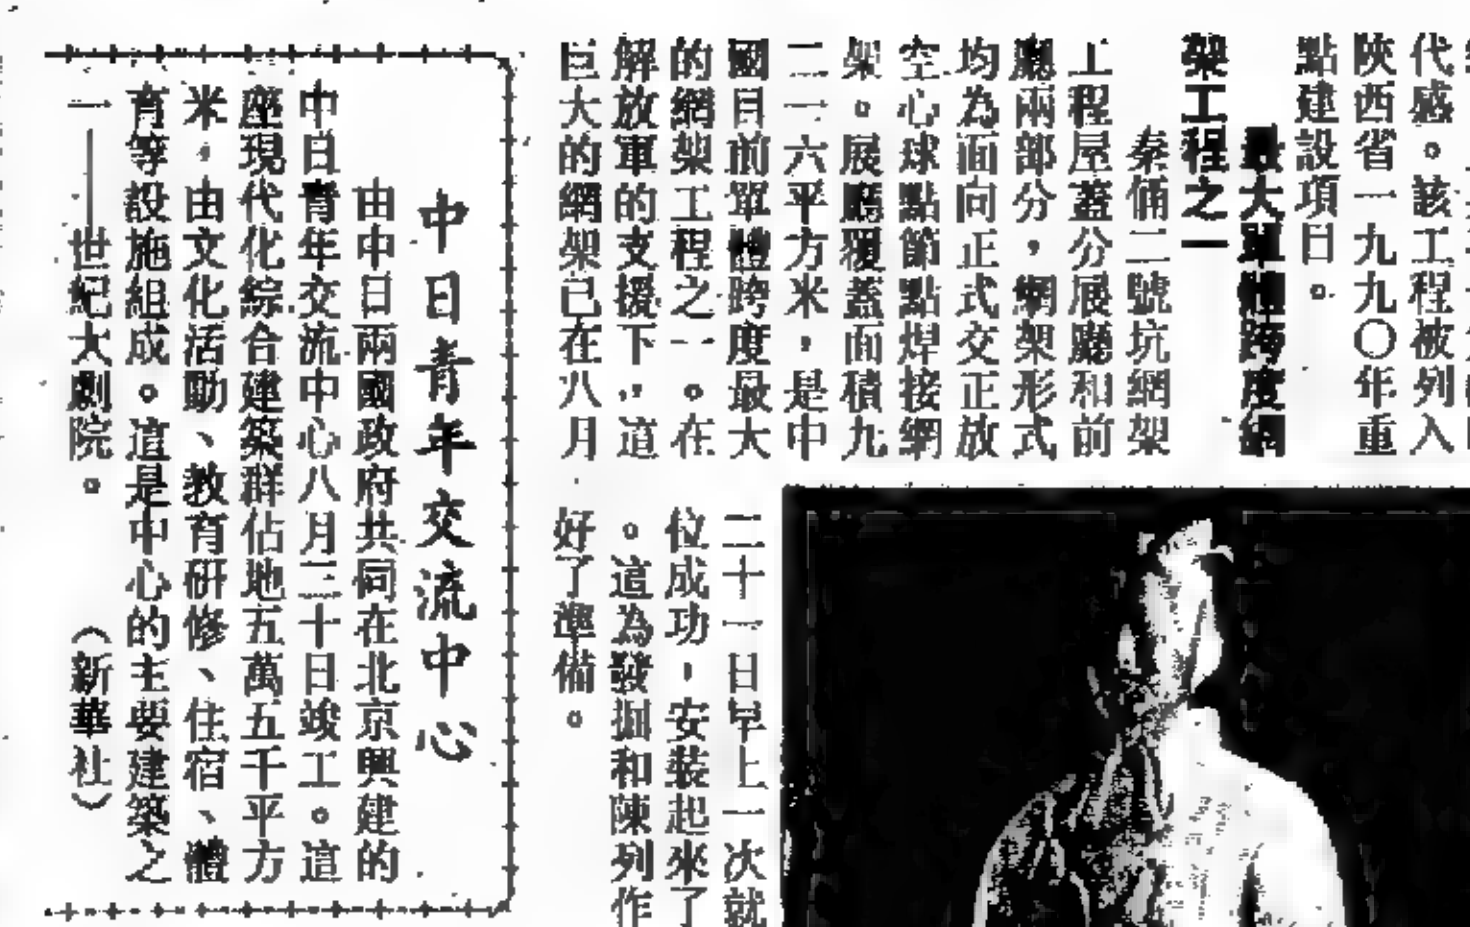 代感。該工程被列入
陝西省一九九〇年重
點建設項目。
最大單體跨度網
架工程之一
秦俑二號坑網架
工程屋蓋分展廳和前
廳兩部分，網架形式
均為面向正式交正放
空心球點節點焊接網
架。展廳覆蓋面積九
二一六平方米，是中
國目前單體跨度最大
的網架工程之一。在
解放軍的支援下，這
巨大的網架已在八月
二十一日早上一次就
位成功，安裝起來了
。這為發掘和陳列作
好了準備。
中日青年交流中心
由中日兩國政府共同在北京興建的
中日青年交流中心八月三十日竣工。這
座現代化綜合建築群佔地五萬五千平方
米，由文化活動、教育研修、住宿、體
育等設施組成。這是中心的主要建築之
一——世紀大劇院。
（新華社）